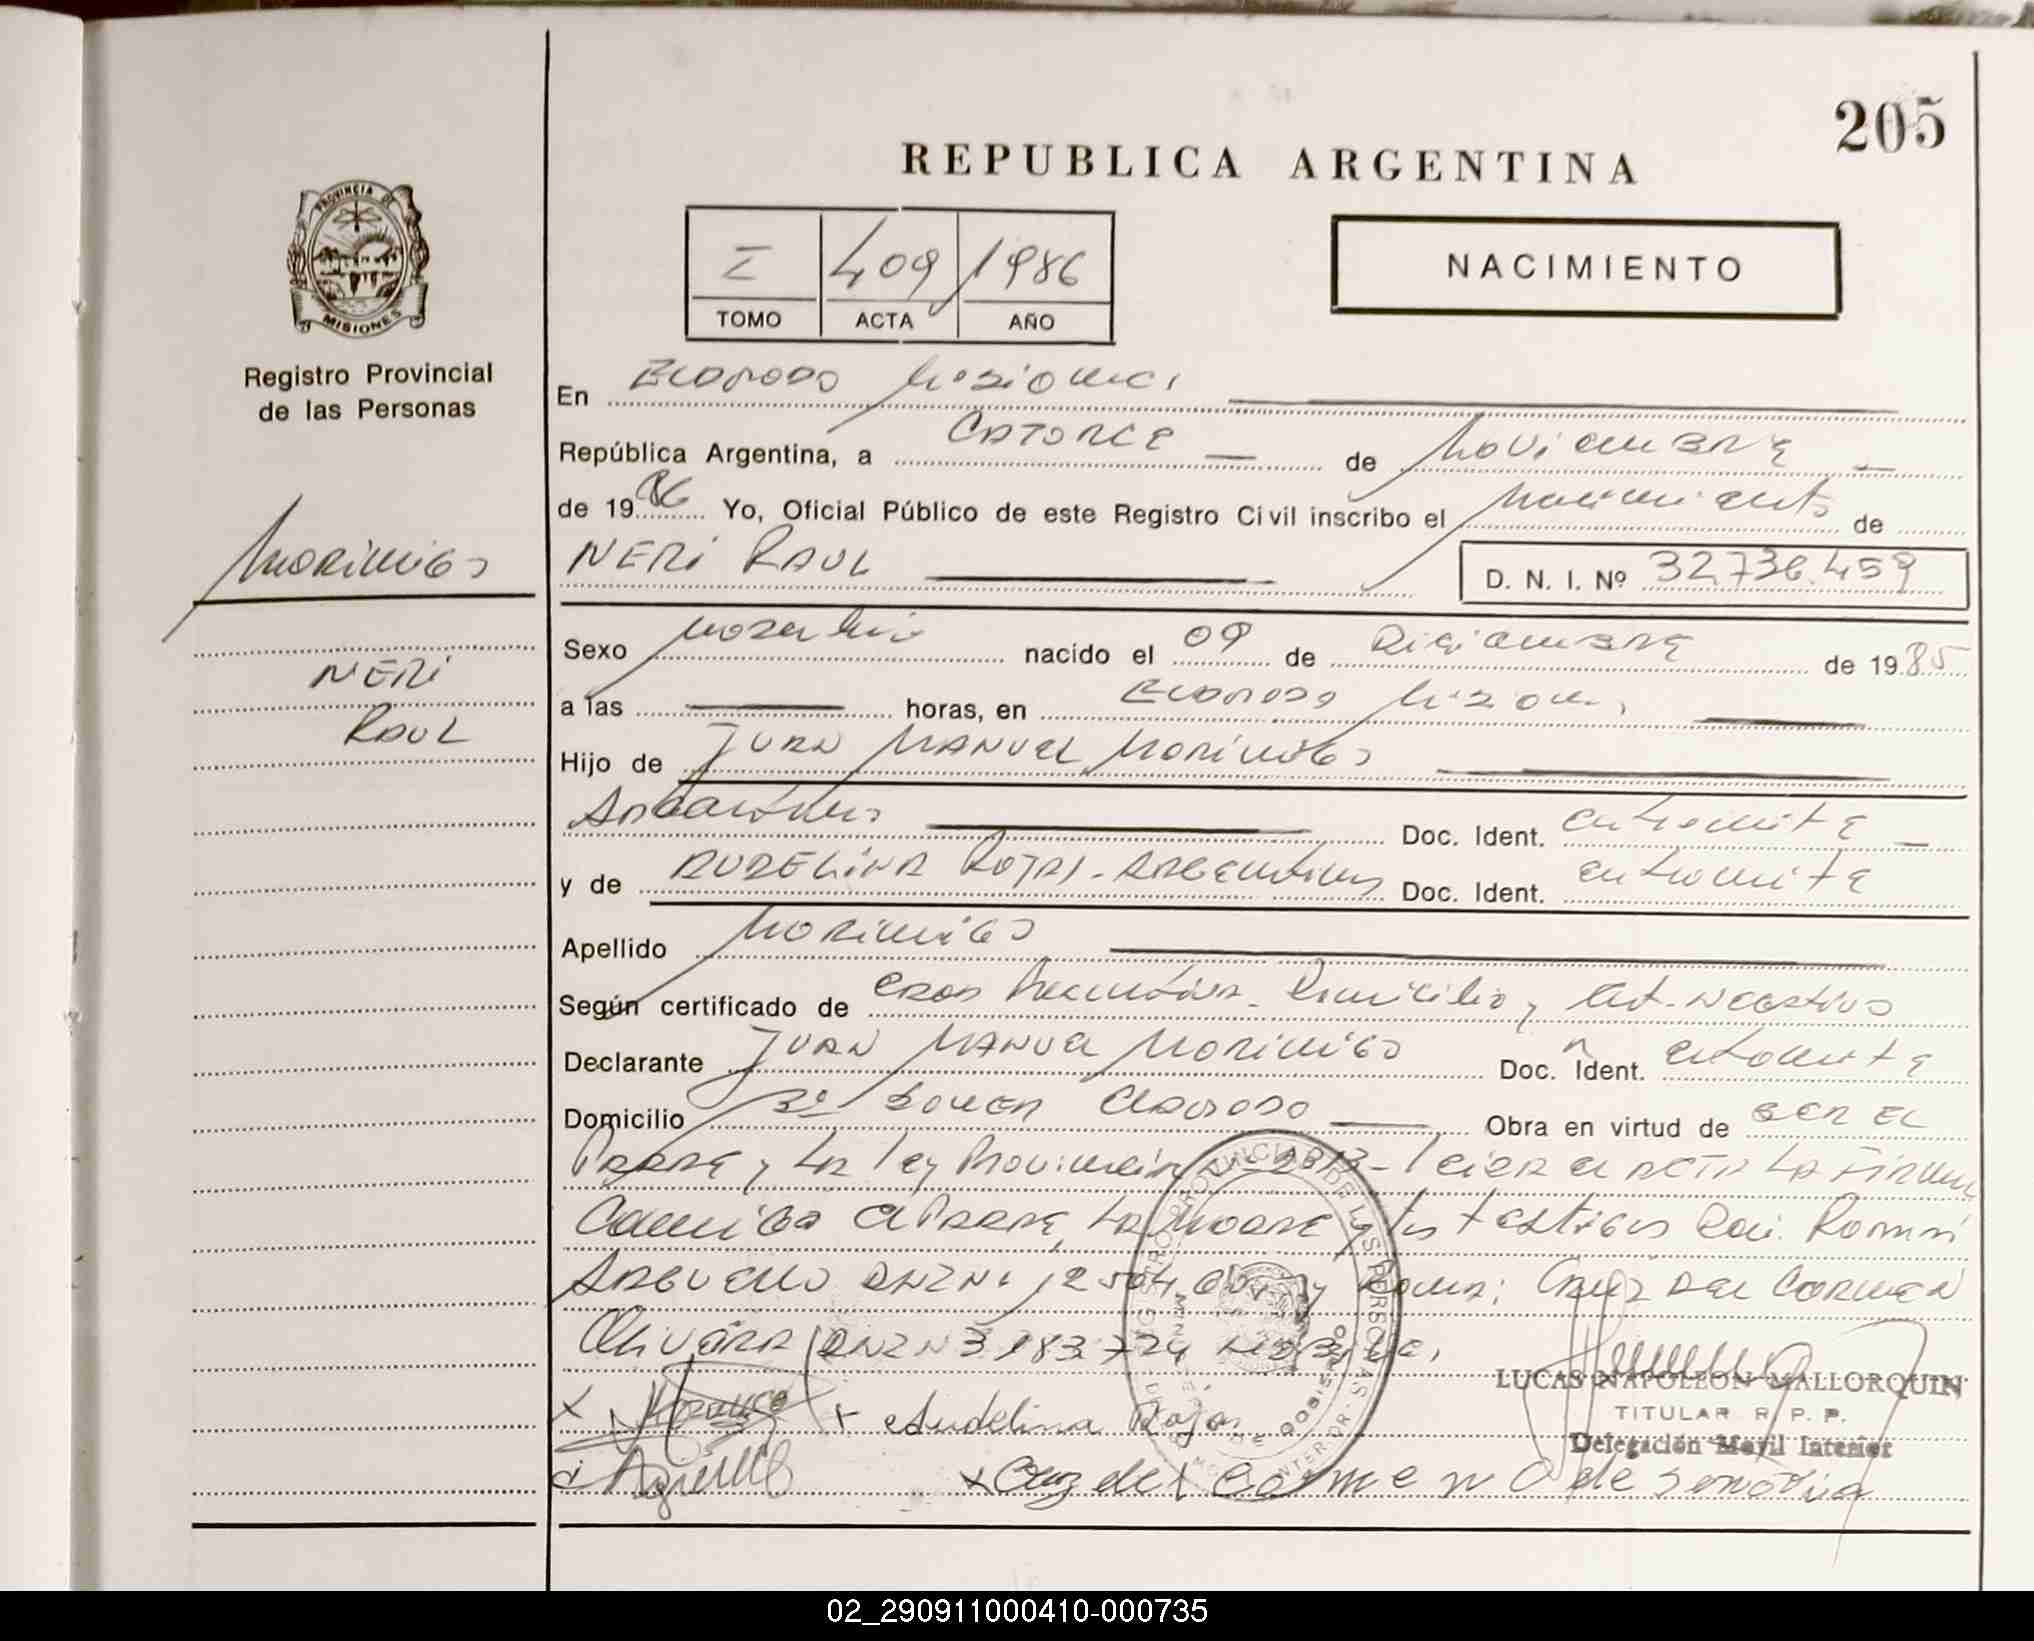 205
REPUBLICA ARGENTINA
PROVINCIA DE
MISIONES
Registro Provincial
de las Personas
I 409 1986
TOMO ACTA AÑO
NACIMIENTO
En ELDORADO Misiones
República Argentina, a CATORCE de Noviembre
de 1986 Yo, Oficial Público de este Registro Civil inscribo el Nacimiento de
NERI RAUL
D. N. I. Nº 32.736.459
MORINIGO
NERI
RAUL
Sexo Masculino nacido el 09 de Diciembre de 1985
a las horas, en ELDORADO Misiones
Hijo de JUAN MANUEL MORINIGO
Argentino Doc. Ident. en trámite
y de AUDELINA ROJAS - ARGENTINA Doc. Ident. en trámite
Apellido MORINIGO
Según certificado de Domicilio y Cert. Negativo
Declarante JUAN MANUEL MORINIGO Doc. Ident. en trámite
Domicilio ELDORADO Obra en virtud de SER EL
PADRE y LA Ley Provincial Nº 2313 - Leida el ACTA LA FIRMAN
Conmigo el PADRE, LA MADRE y los testigos
ARGUELLO DNI Nº 12 504 CRUZ DEL CARMEN
OLIVERA DNI Nº 3.183.774
LUCAS NAPOLEON MALLORQUIN
TITULAR R. P. P.
Delegación Movil Interior
x Audelina Rojas
x Cruz del Carmen O de
02_290911000410-000735